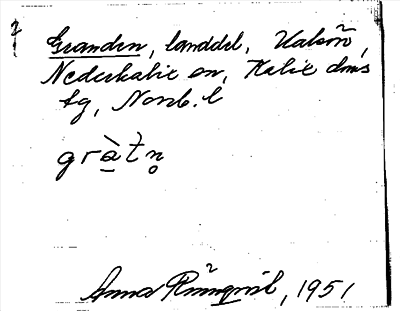 Grandn, landdel, Kalsön,
Nederkalix sn, Kalix dms
tg, Norrb. l
gràtn̥
Anna Rönnqvist, 1951